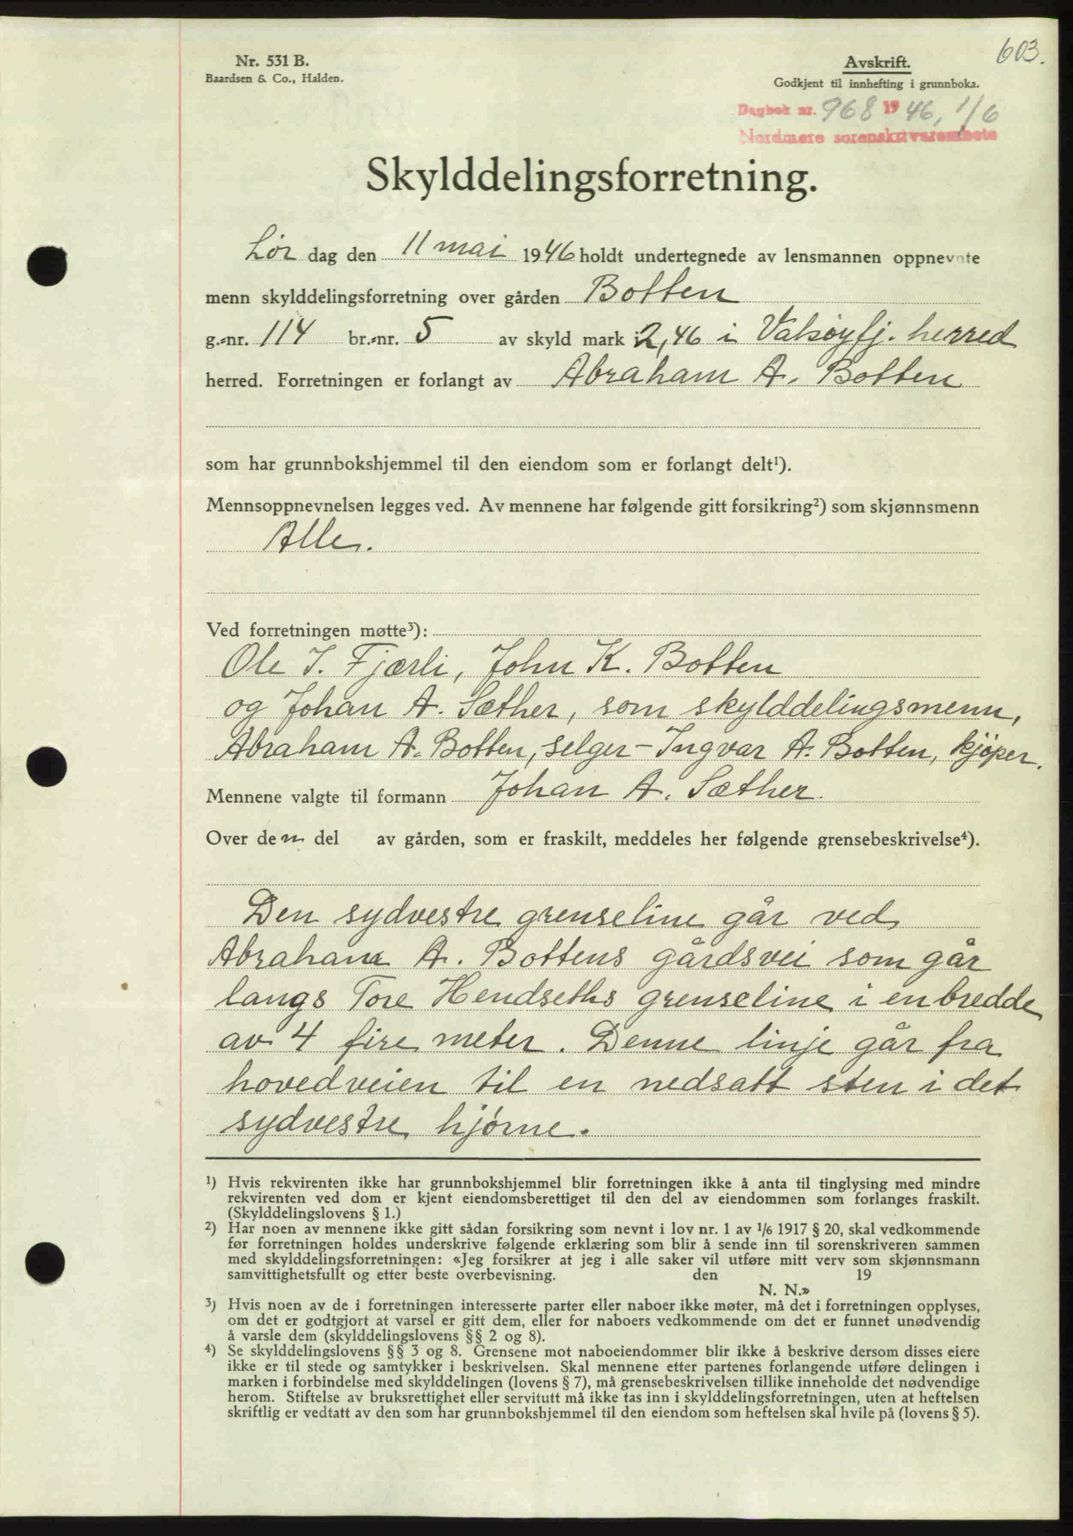 603.
Nr. 531 B.
Baardsen & Co., Halden.
Avskrift.
Godkjent til innhefting i grunnboka.
Dagbok nr. 968 1946, 1/6
Nordmøre sorenskriverembete
Skylddelingsforretning.
Lør dag den 11 mai 1946 holdt undertegnede av lensmannen oppnevnte
menn skylddelingsforretning over gården Botten
g.-nr. 114 br.-nr. 5 av skyld mark 2,46 i Valsøyfj. herred
herred. Forretningen er forlangt av Abraham A. Botten
som har grunnbokshjemmel til den eiendom som er forlangt delt¹).
Mennsoppnevnelsen legges ved. Av mennene har følgende gitt forsikring²) som skjønnsmenn
Alle.
Ved forretningen møtte³):
Ole I. Fjærli, John K. Botten
og Johan A. Sæther, som skylddelingsmenn,
Abraham A. Botten, selger - Ingvar A. Botten, kjøper.
Mennene valgte til formann Johan A. Sæther.
Over den del av gården, som er fraskilt, meddeles her følgende grensebeskrivelse⁴).
Den sydvestre grenseline går ved
Abraham A. Bottens gårdsvei som går
langs Tore Hendseths grenseline i en bredde
av 4 fire meter. Denne linje går fra
hovedveien til en nedsatt sten i det
sydvestre hjørne.
¹) Hvis rekvirenten ikke har grunnbokshjemmel blir forretningen ikke å anta til tinglysing med mindre
rekvirenten ved dom er kjent eiendomsberettiget til den del av eiendommen som forlanges fraskilt.
(Skylddelingslovens § 1.)
²) Har noen av mennene ikke gitt sådan forsikring som nevnt i lov nr. 1 av 1/6 1917 § 20, skal vedkommende
før forretningen holdes underskrive følgende erklæring som blir å sende inn til sorenskriveren sammen
med skylddelingsforretningen: «Jeg forsikrer at jeg i alle saker vil utføre mitt verv som skjønnsmann
samvittighetsfullt og etter beste overbevisning. den 19
N. N.»
³) Hvis noen av de i forretningen interesserte parter eller naboer ikke møter, må det i forretningen opplyses,
om det er godtgjort at varsel er gitt dem, eller for naboers vedkommende om det er funnet unødvendig
å varsle dem (skylddelingslovens §§ 2 og 8).
⁴) Se skylddelingslovens §§ 3 og 8. Grensene mot naboeiendommer blir ikke å beskrive dersom disses eiere
ikke er til stede og samtykker i beskrivelsen. Skal mennene etter partenes forlangende utføre delingen i
marken i forbindelse med skylddelingen (lovens § 7), må grensebeskrivelsen tillike inneholde det nødvendige
herom. Stiftelse av bruksrettighet eller servitutt må ikke tas inn i skylddelingsforretningen, uten at heftelsen
skriftlig er vedtatt av den som har grunnbokshjemmel til den eiendom som heftelsen skal hvile på (lovens § 5).